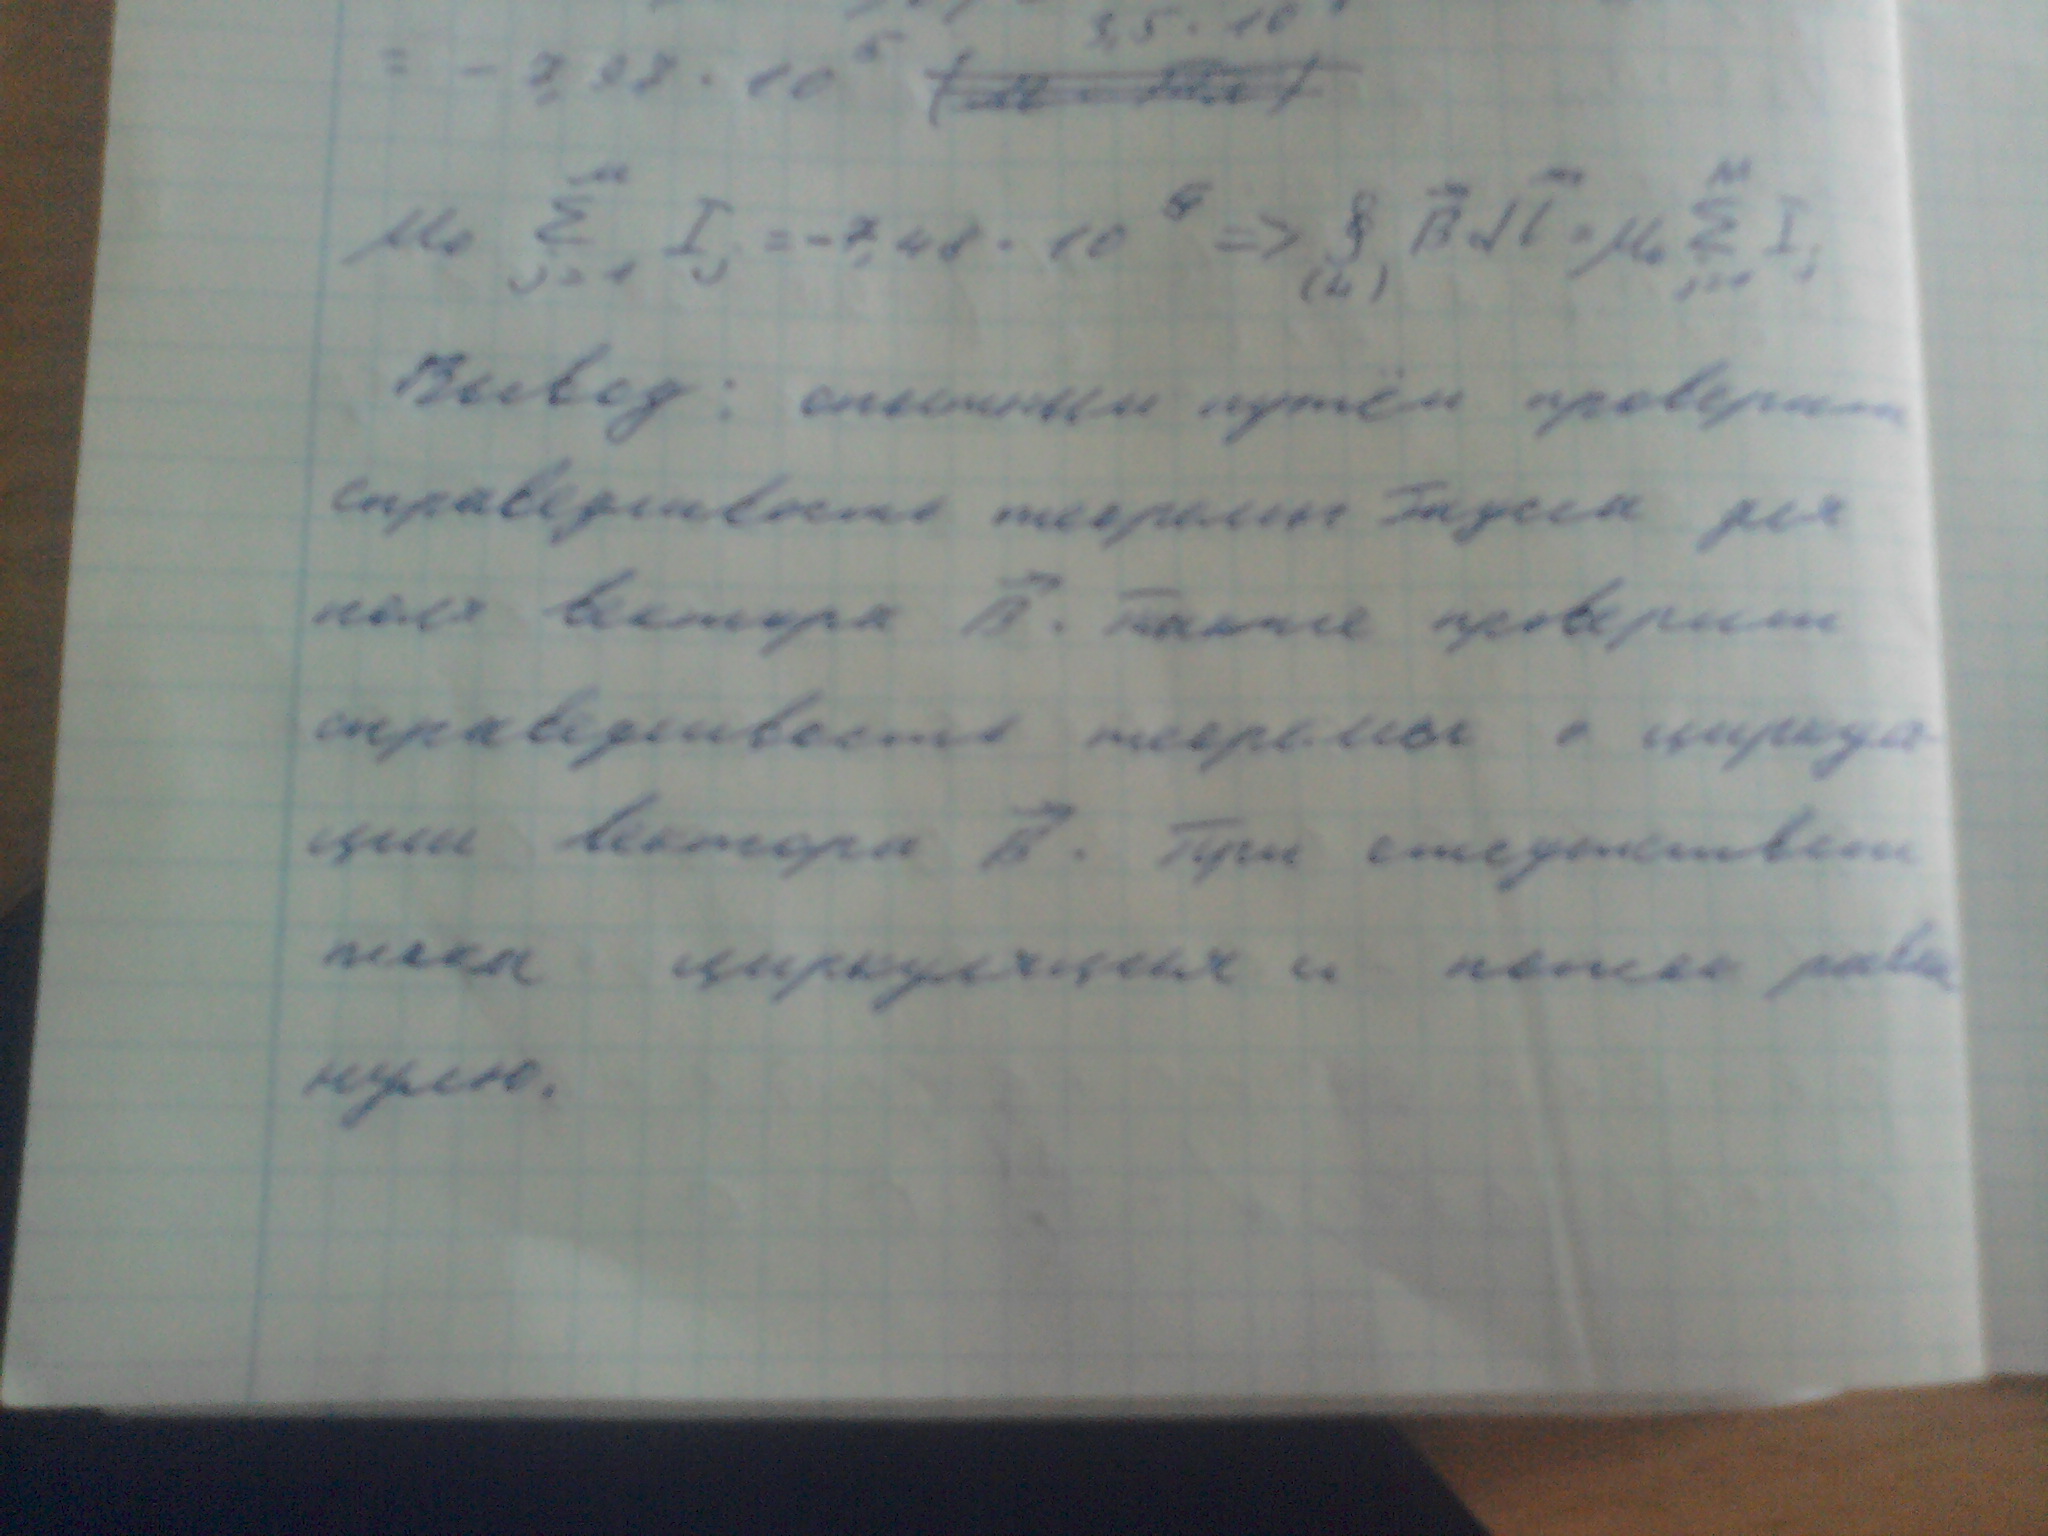 3,5 · 10
= - 7,98 · 10⁵
μ₀ Σ I_j = -7,48 · 10 => ∮ B⃗ dl⃗ = μ₀ Σ I_j
Вывод: опытным путём проверили
справедливость теоремы Гаусса для
поля вектора B⃗. Также проверили
справедливость теоремы о циркуля-
ции вектора B⃗. При отсутствии
тока циркуляция и поток равны
нулю.